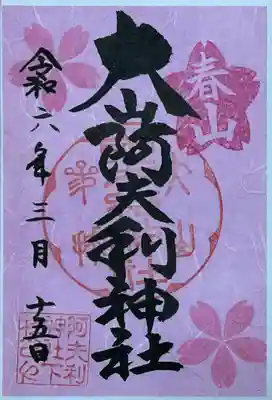 春山
大山阿夫利神社
令和六年三月
十五日
阿夫利
神社下
社之印